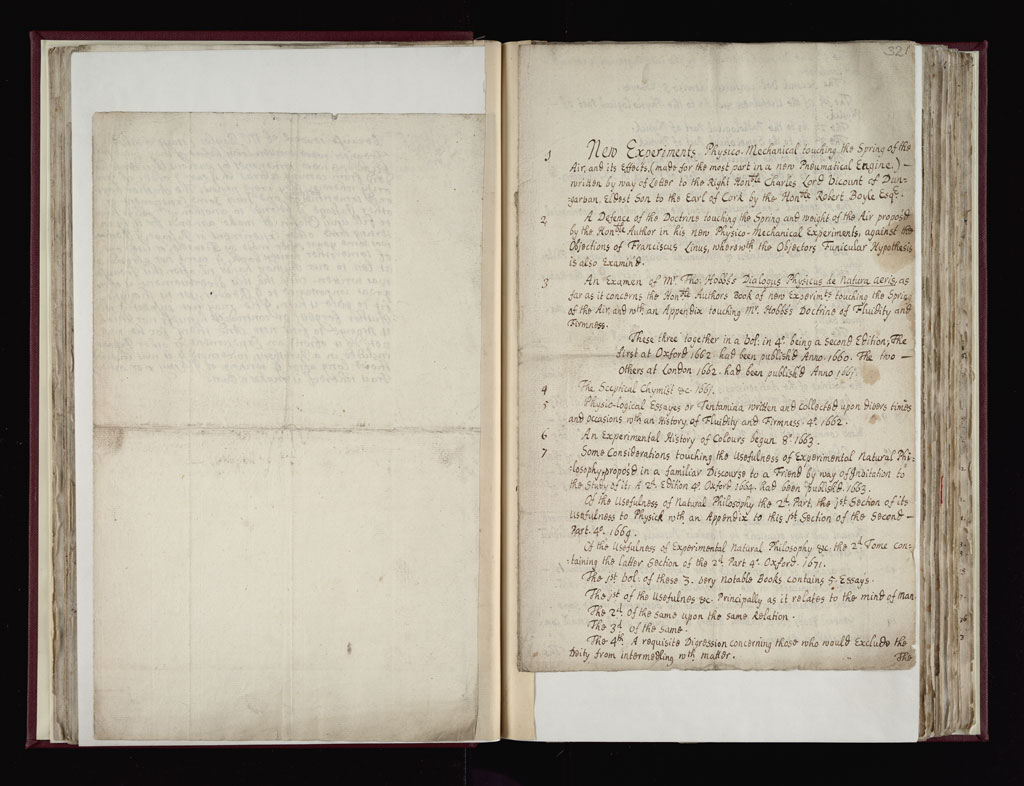 321
1 New Experiments Physico-Mechanical touching the Spring of the
Air, and its Effects, (made for the most part in a new Pneumatical Engine.) —
written by way of Letter to the Right Honble Charles Lord Vicount of Dun-
-garvan, Eldest Son to the Earl of Cork by the Honble Robert Boyle Esqe.
2 A Defence of the Doctrine touching the Spring and weight of the Air propos'd
by the Honble Author in his new Physico-Mechanical Experiments, against the
Objections of Franciscus Linus, wherewth the Objectors Funicular Hypothesis
is also Examin'd.
3 An Examen of Mr. Tho: Hobbs's Dialogus Physicus de Natura aeris, as
far as it concerns the Honble Authors Book of new Experimts touching the Spring
of the Air, and wth an Appendix touching Mr. Hobbs's Doctrine of Fluidity and
Firmness.
These three together in a Vol: in 4o. being a second Edition, The
first at Oxford 1662 had been publish'd Anno. 1660. The two —
others at London 1662. had been publish'd Anno 1661.
4 The Sceptical Chymist &c. 1661.
5 Physio-logical Essayes or Tentamina written and collected upon divers times
and occasions wth an History of Fluidity and Firmness. 4o. 1662.
6 An Experimental History of Colours begun 8o. 1663.
7 Some Considerations touching the Usefulness of Experimental Natural Phi-
-losophy, propos'd in a familiar Discourse to a Friend by way of Invitation to
the Study of it. A 2d. Edition 4o. Oxford 1664. had been publish'd. 1663.
Of the Usefulness of Natural Philosophy the 2d. Part, the 1st Section of its
Usefulness to Physick wth an Appendix to this 1st Section of the Second —
Part. 4o. 1664.
Of the Usefulness of Experimental Natural Philosophy &c. the 2d. Tome con-
-taining the latter Section of the 2d. Part 4o. Oxford. 1671.
The 1st Vol: of these 3. very notable Books contains 5. Essays.
The 1st of the Usefulnes &c. Principally as it relates to the mind of man
The 2d. of the same upon the same Relation.
The 3d. of the same.
The 4th. A requisite Digression concerning those who would Exclude the
Deity from intermedling wth matter.
The